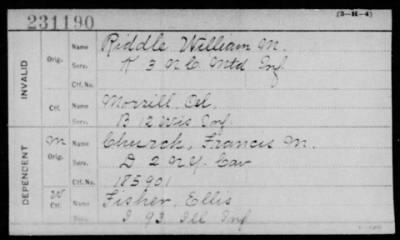 231190
(3-H-4)
INVALID
Orig.
Name Riddle William M.
Serv. K 3 N.C. Mtd Inf
Ctf. No.
Ctf.
Name Morrill, Oel.
Serv. B 12 Wis Inf
DEPENDENT
M
Orig.
Name Church, Francis M.
Serv. D 2 N.Y. Cav
Ctf. No. 185901
W
Ctf.
Name Fisher, Ellis
Serv. I 93 Ill Inf